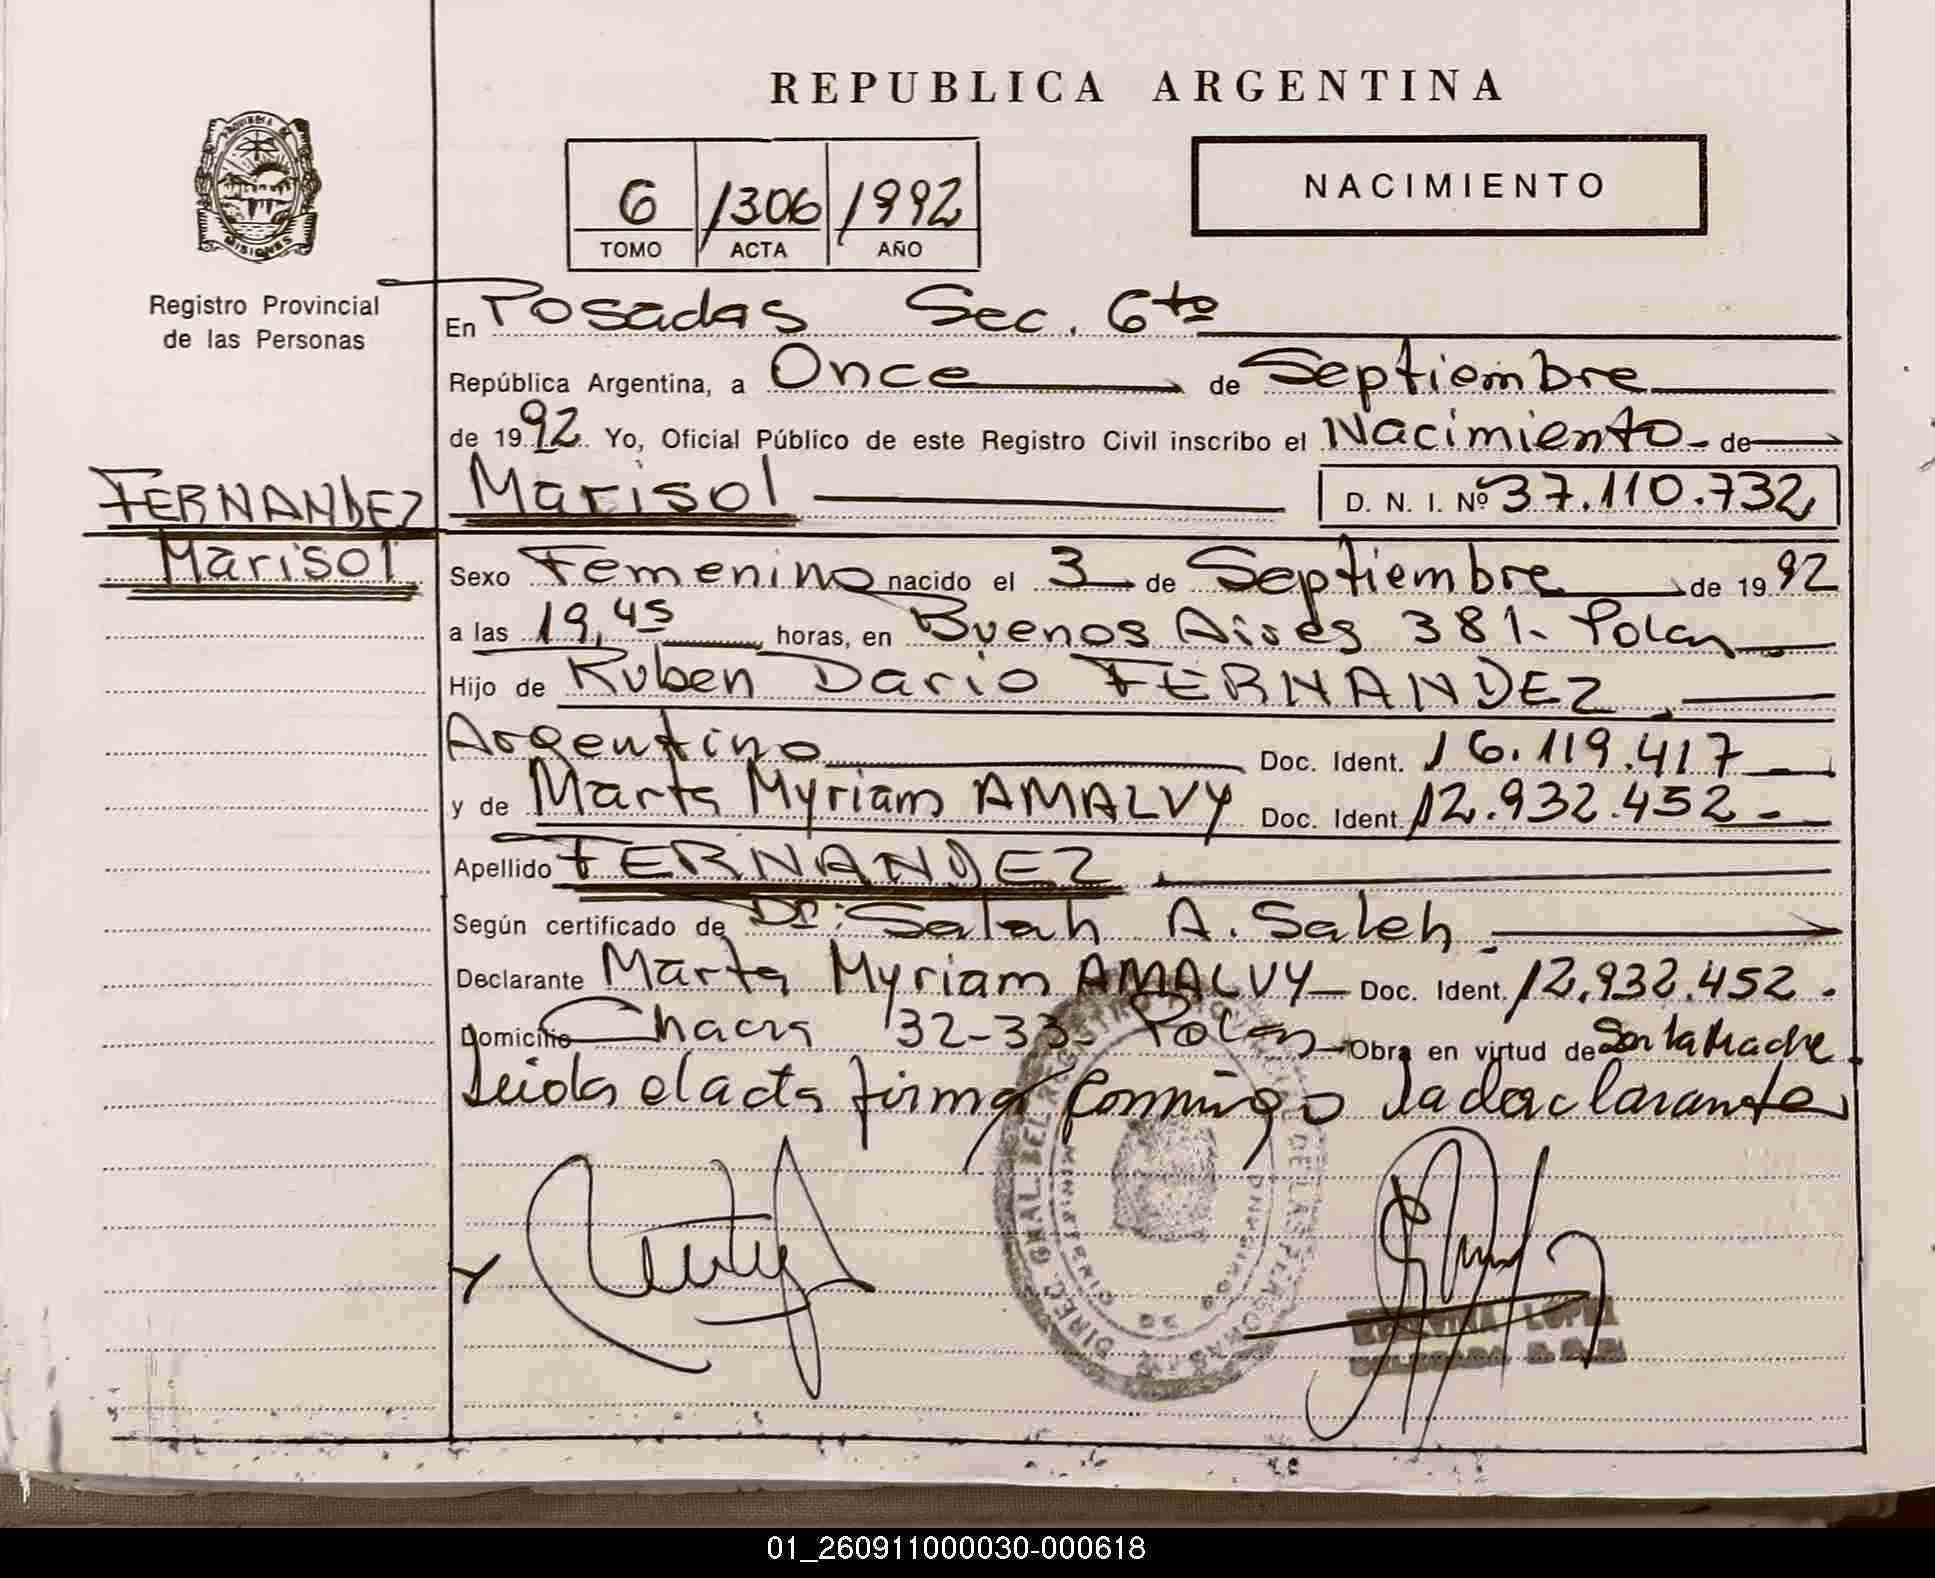 REPUBLICA ARGENTINA
PROVINCIA DE
MISIONES
Registro Provincial
de las Personas
6 1306 1992
TOMO ACTA AÑO
NACIMIENTO
En Posadas Sec. 6to
República Argentina, a Once de Septiembre
de 1992 Yo, Oficial Público de este Registro Civil inscribo el Nacimiento de
FERNANDEZ
Marisol
Marisol D. N. I. Nº 37.110.732
Sexo Femenino nacido el 3 de Septiembre de 1992
a las 19,45 horas, en Buenos Aires 381. Pdas
Hijo de Ruben Dario FERNANDEZ
Argentino Doc. Ident. 16.119.417
y de Marta Myriam AMALVY Doc. Ident. 12.932.452
Apellido FERNANDEZ
Según certificado de Dr: Salah A. Saleh
Declarante Marta Myriam AMALVY Doc. Ident. 12.932.452.
Domicilio Chacra 32-33 Pdas Obra en virtud de Ser la Madre
Leida el acta firma conmigo la declarante
DIREC. GRAL. DEL REGISTRO PROVINCIAL DE LAS PERSONAS
MINISTERIO DE GOBIERNO
LOPEZ
01_260911000030-000618